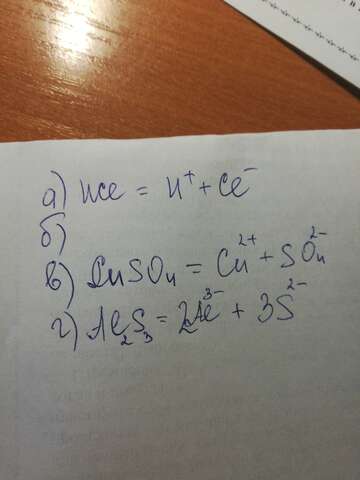 а) HCl = H⁺ + Cl⁻
б)
в) CuSO₄ = Cu²⁺ + SO₄²⁻
г) Al₂S₃ = 2Al³⁻ + 3S²⁻